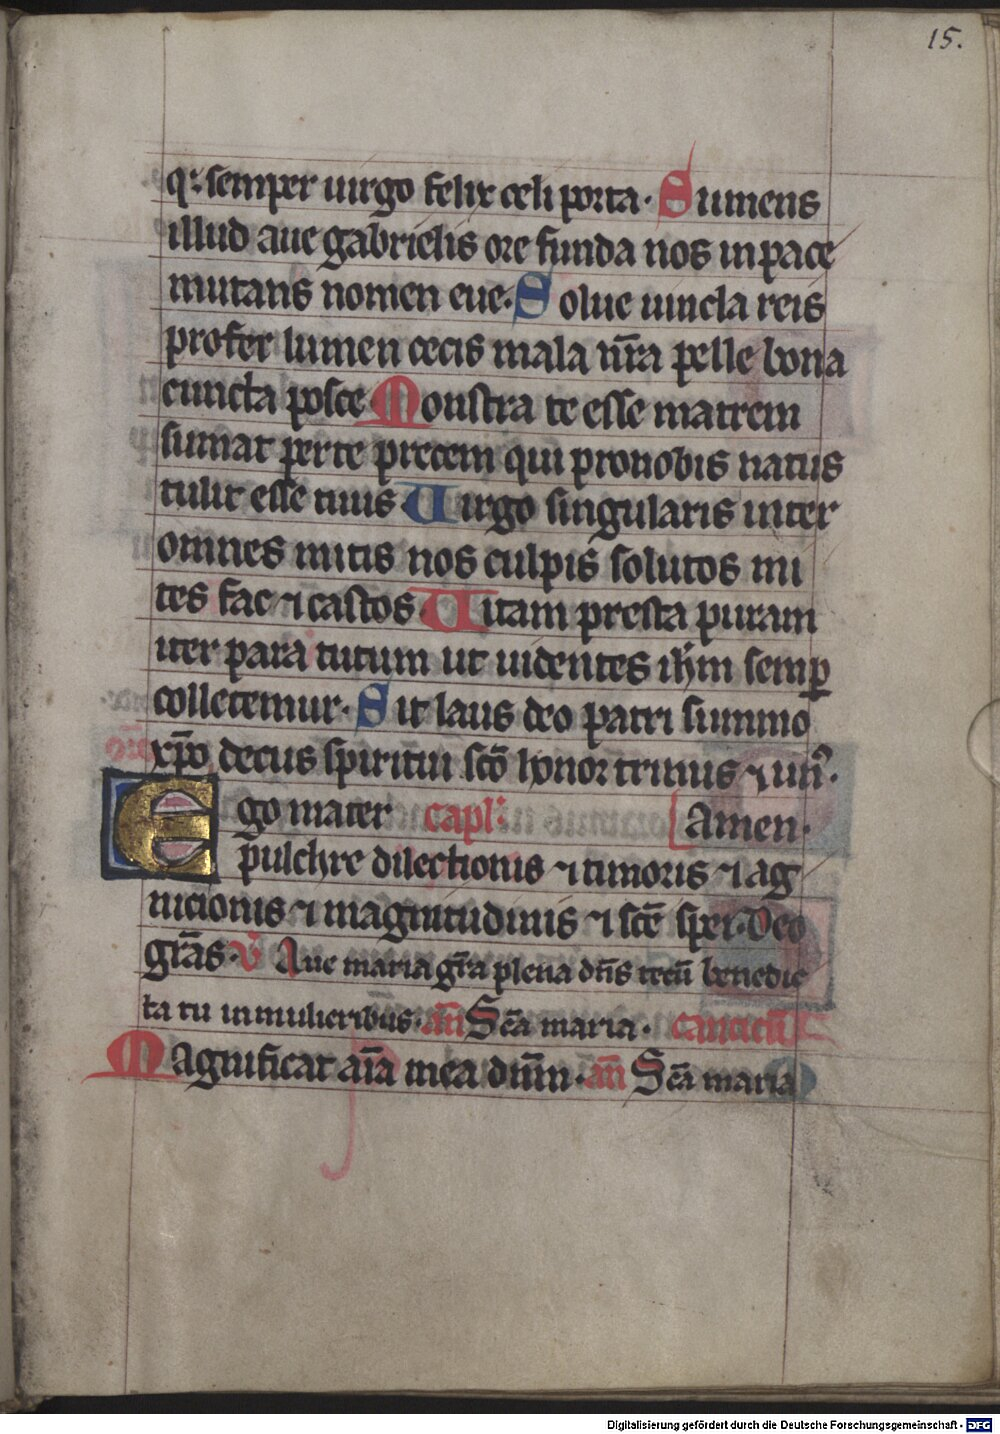 15.
q: semper uirgo felix celi porta. Sumens
illud aue gabrielis ore funda nos in pace
mutans nomen eue. Solue uincla reis
profer lumen cecis mala nr̄a pelle bona
cuncta posce Monstra te esse matrem
sumat per te precem qui pro nobis natus
tulit esse tuus Uirgo singularis inter
omnes mitis nos culpis solutos mi
tes fac ⁊ castos. Uitam presta puram
iter para tutum ut uidentes ih̄m semꝑ
colletemur. Sit laus deo patri summo
xp̄o decus spiritui sc̄o honor trinus ⁊ un9.
Ego mater capl: Amen.
pulchre dilectionis ⁊ timoris ⁊ ag
nicionis ⁊ magnitudinis ⁊ sc̄e spei. Deo
gr̄as. v̄ Aue maria gr̄a plena dn̄s tecū benedic
ta tu in mulieribus. an̄ Sc̄a maria. canticū
Magnificat aīa mea dn̄m. an̄ Sc̄a maria
Digitalisierung gefördert durch die Deutsche Forschungsgemeinschaft - DFG